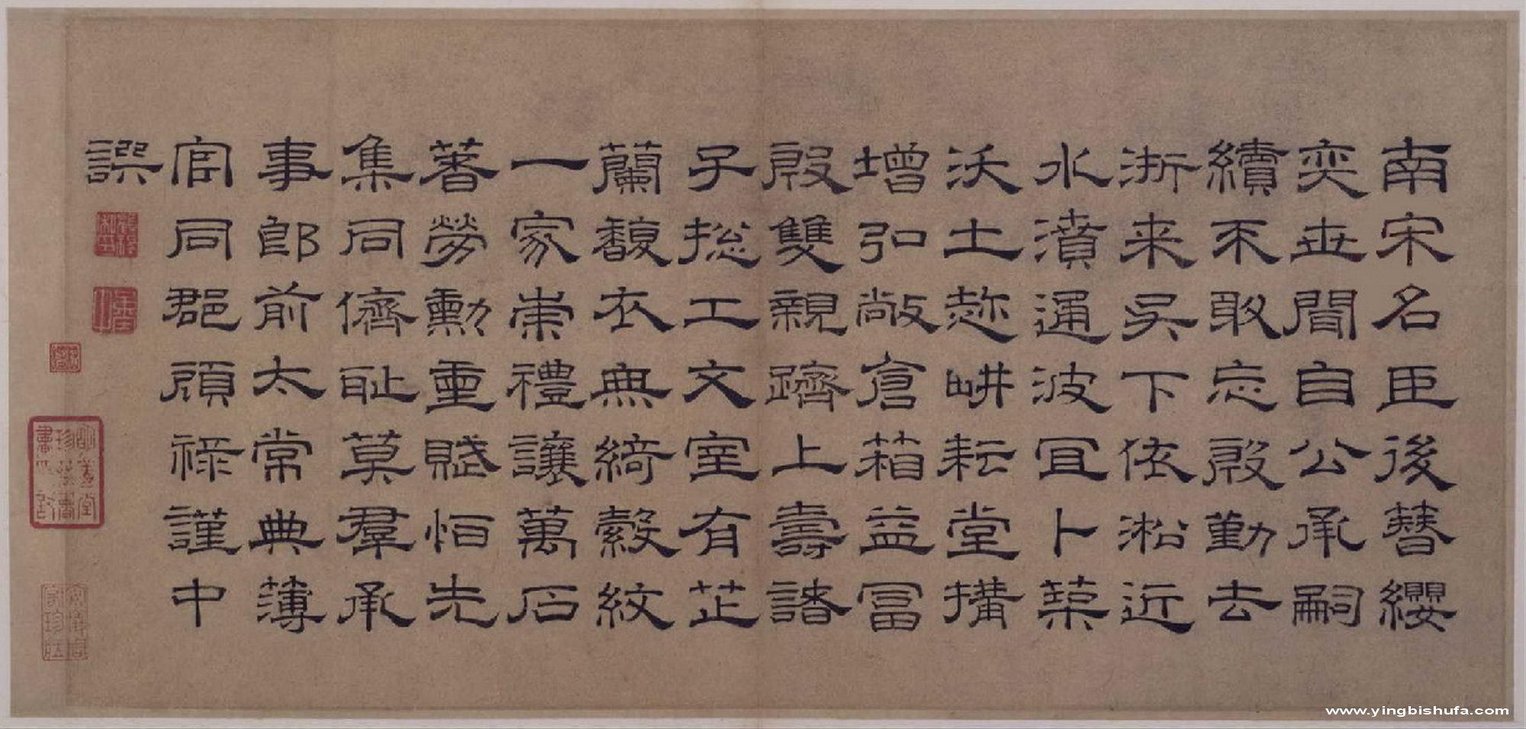 南宋名臣後簪纓
奕世聞自公承嗣
續不敢忘殷勤去
浙来吴下依淞近
水濆通波冝卜築
沃土趂畊耘堂搆
增弘敞倉箱益冨
殷雙親躋上壽諸
子揔工文室有芷
蘭馥衣無綺縠紋
一家崇禮讓萬石
著勞勳重賦恒先
集同儕耻莫羣承
事郎前太常典薄
官同郡顧祿謹中
譔
www.yingbishufa.com